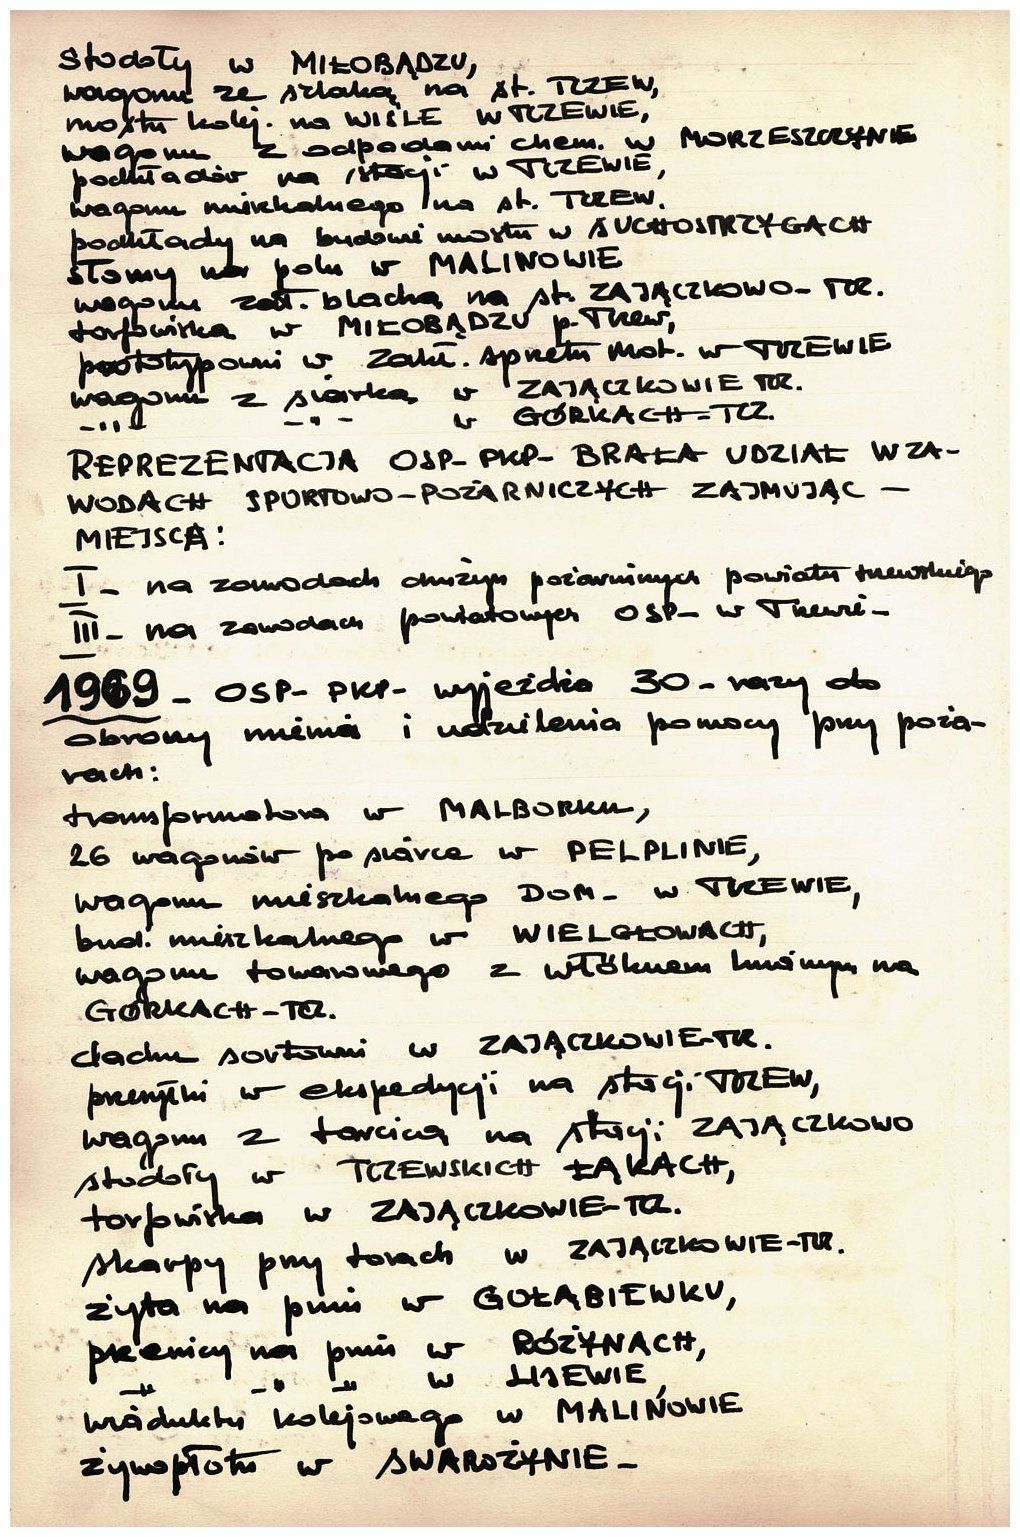 stodoły w MIŁOBĄDZU,
wagonu ze szlaką na st. TCZEW,
mostu kolej. na WIŚLE W TCZEWIE,
wagonu z odpadami chem. w MORZESZCZYNIE
podkładów na stacji w TCZEWIE,
wagonu mieszkalnego na st. TCZEW.
podkłady na budowie mostu w SUCHOSTRZYGACH
słomy na polu w MALINOWIE
wagonu zał. blachą na st. ZAJĄCZKOWO-TCZ.
torfowiska w MIŁOBĄDZU p. Tczew,
prototypowni w Zakł. sprzętu Mot. w TCZEWIE
wagonu z siarką w ZAJĄCZKOWIE TCZ.
-"- -"- w GÓRKACH-TCZ.
REPREZENTACJA OSP-PKP- BRAŁA UDZIAŁ W ZA-
WODACH SPORTOWO-POŻARNICZYCH ZAJMUJĄC -
MIEJSCA:
I - na zawodach drużyn pożarniczych powiatu tczewskiego
III - na zawodach powiatowych OSP- w Tczewie-
1969 - OSP- PKP- wyjeżdża 30-razy do
obrony mienia i udzielenia pomocy przy poża-
rach:
transformatora w MALBORKU,
26 wagonów po siarce w PELPLINIE,
wagonu mieszkalnego DOM- w TCZEWIE,
bud. mieszkalnego w WIELGŁOWACH,
wagonu towarowego z włóknem lnianym na
GÓRKACH-TCZ.
dachu sortowni w ZAJĄCZKOWIE-TCZ.
przesyłki w ekspedycji na stacji TCZEW,
wagonu z tarcicą na stacji ZAJĄCZKOWO
stodoły w TCZEWSKICH ŁĄKACH,
torfowiska w ZAJĄCZKOWIE-TCZ.
skarpy przy torach w ZAJĄCZKOWIE-TCZ.
żyta na pniu w GOŁĄBIEWKU,
pszenicy na pniu w RÓŻYNACH,
-"- -"- -"- w LISEWIE,
wiaduktu kolejowego w MALINOWIE
żywopłotu w SWAROŻYNIE-